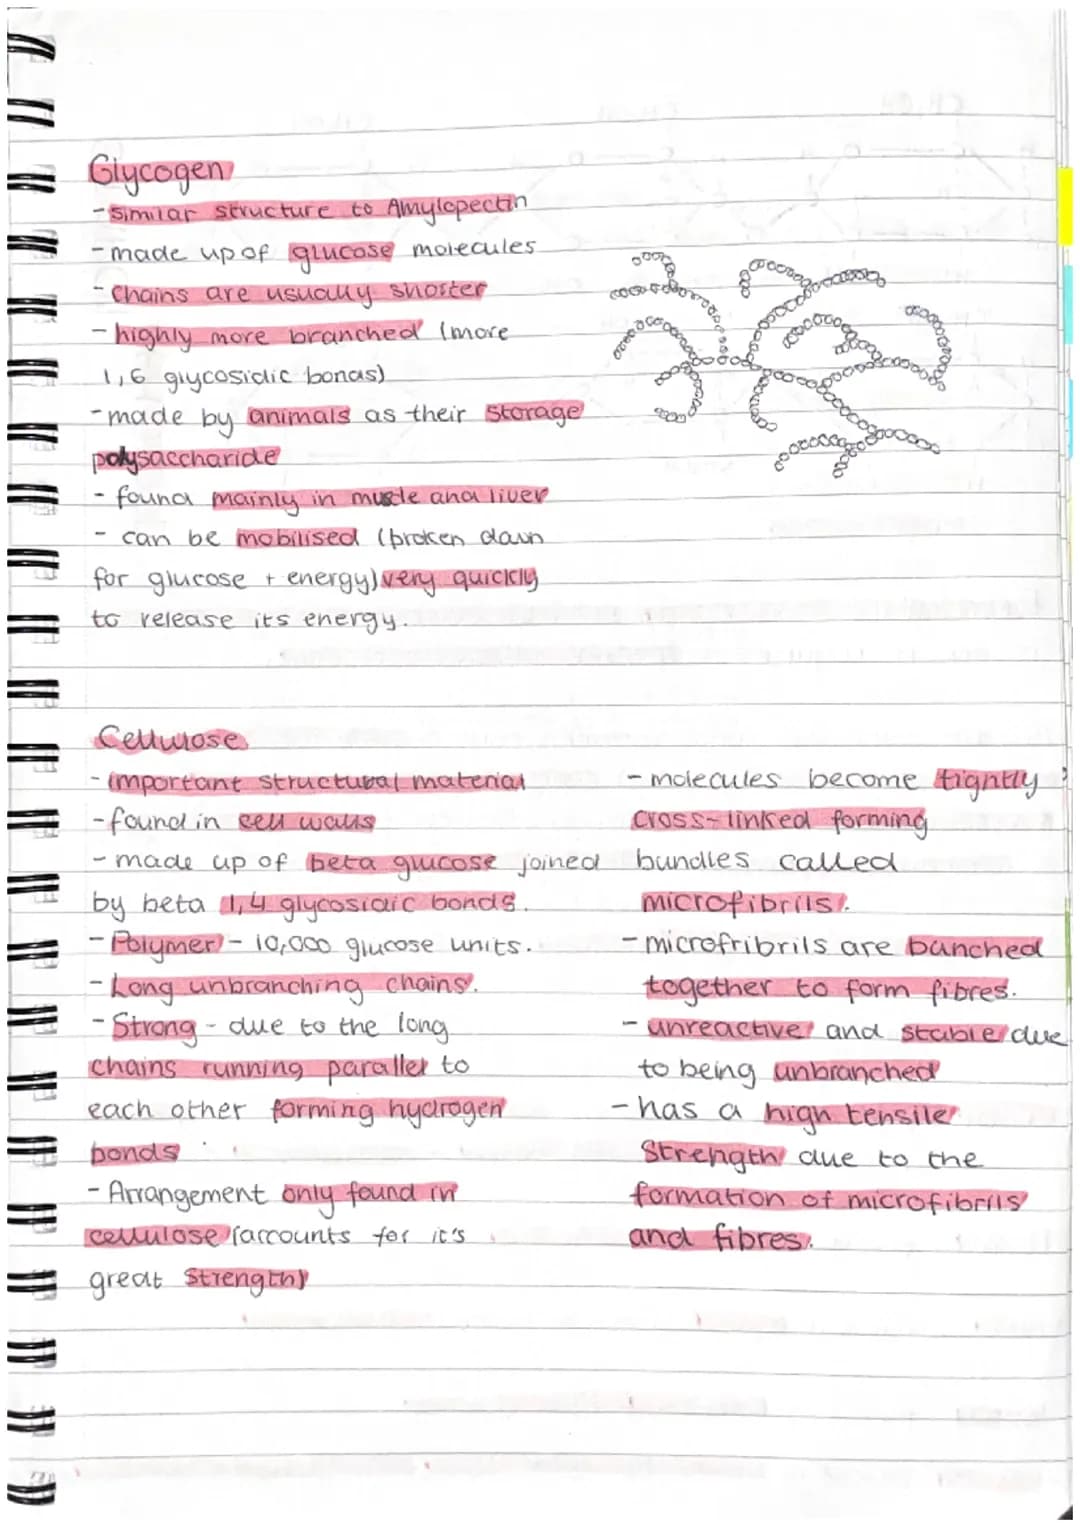 Glycogen
- similar structure to Amylopectin
- made up of glucose molecules
- Chains are usually shorter
- highly more branched (more
1,6 glycosidic bonds)
- made by animals as their storage
polysaccharide
- found mainly in muscle and liver
- can be mobilised (broken down
for glucose + energy) very quickly
to release its energy.
Cellulose
- important structural material
- found in cell walls
- made up of beta glucose joined
by beta 1,4 glycosidic bonds.
- Polymer - 10,000 glucose units.
- Long unbranching chains.
- Strong - due to the long
chains running parallel to
each other forming hydrogen
bonds
- Arrangement only found in
cellulose (accounts for it's
great strength)
- molecules become tightly
cross-linked forming
bundles called
microfibrils.
- microfribrils are bunched
together to form fibres.
- unreactive and stable due
to being unbranched
- has a high tensile
Strength due to the
formation of microfibrils
and fibres.